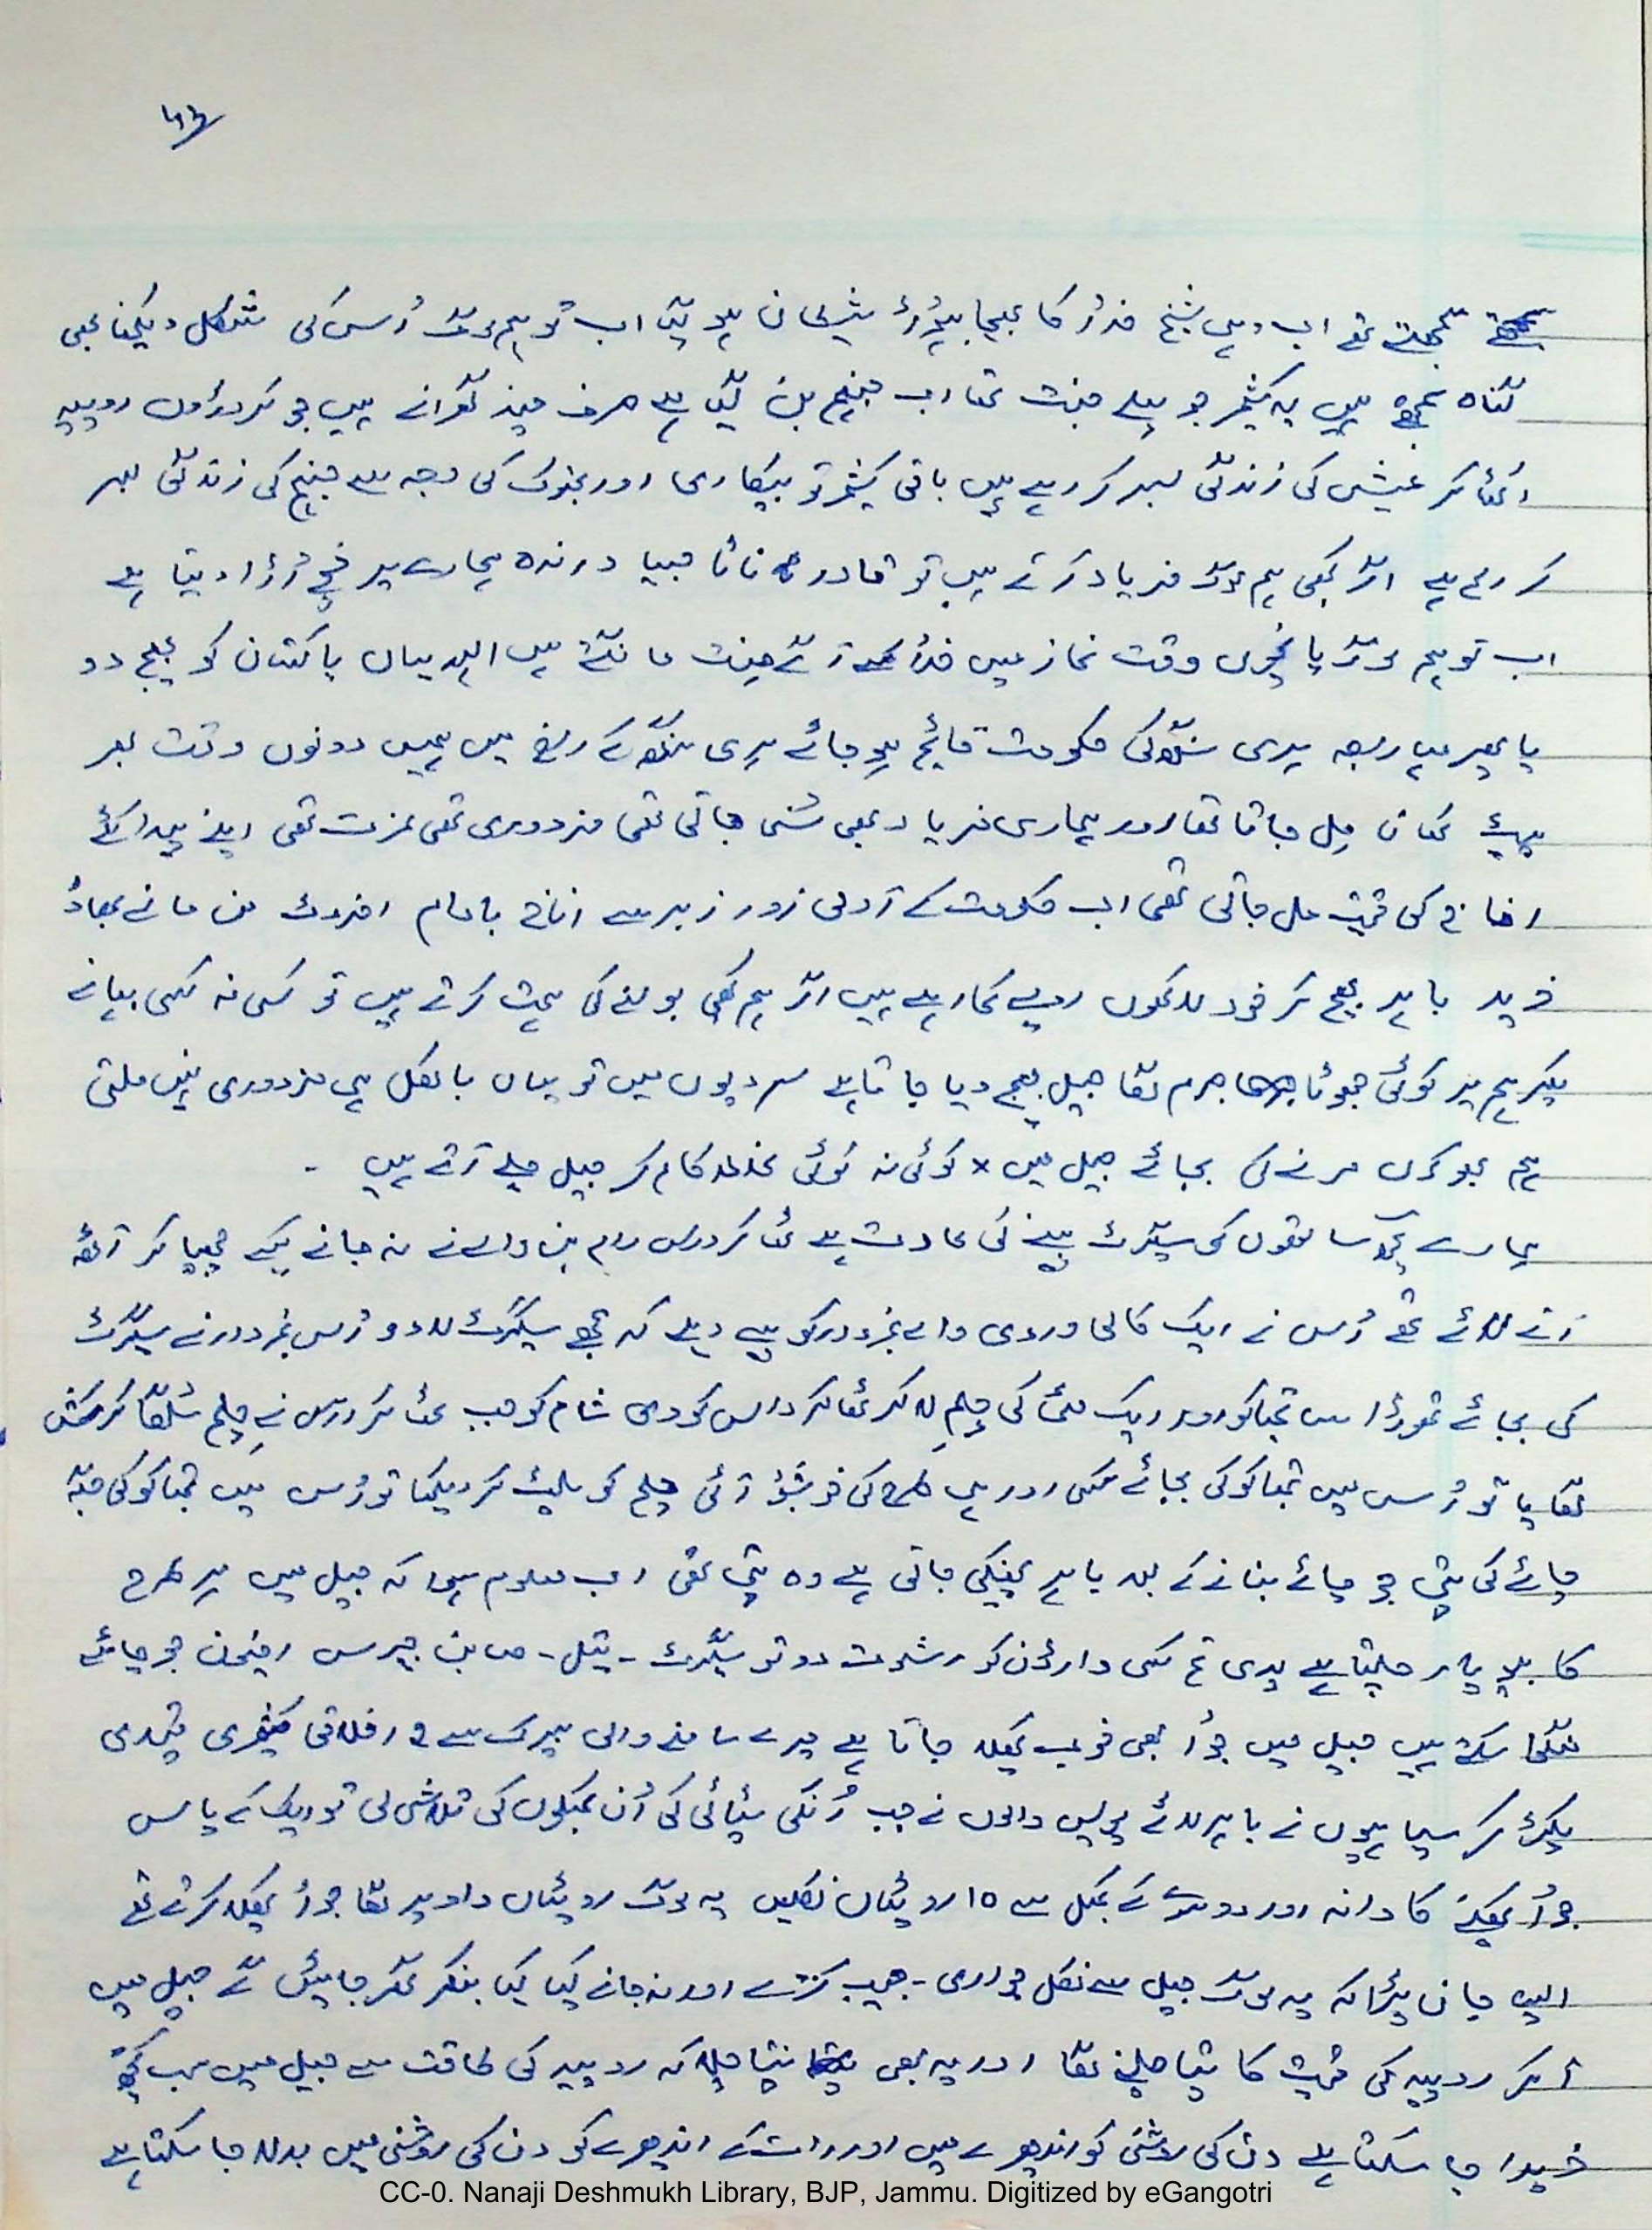 سمجھتے تھے اب وہی شیخ خدا کا بھیجا ہوا شیطان ہو گیا اب تو ہم لوگ اُس کی شکل دیکھنا بھی
گناہ سمجھتے ہیں یہ کشمیر جو پہلے جنت تھا اب جہنم بن گیا ہے صرف چند گھرانے ہیں جو کروڑوں روپیہ
کر عیش کی زندگی بسر کر رہے ہیں باقی کشمیر تو بیکاری اور بھوک کی وجہ سے جہنم کی زندگی بسر
کر رہے ہیں اگر کبھی ہم لوگ فریاد کرتے ہیں تو قادر جیسا درندہ ہمارے پر
اب تو ہم لوگ پانچوں وقت نماز میں خدا کے آگے منت مانگتے ہیں اللہ میاں پاکستان کو بھیج دو
یا پھر مہاراجہ ہری سنگھ کی حکومت قائم ہو جائے ہری سنگھ کے راج میں ہمیں دونوں وقت بھر
پیٹ کھانا مل جاتا تھا اور ہماری فریاد بھی سُنی جاتی تھی مزدوری تھی عزت تھی اپنے پیدا کئے
اناج کی قیمت مل جاتی تھی اب حکومت کے آدمی زور زبر سے اناج بادام اخروٹ من مانے بھاؤ
خرید باہر بھیج کر خود لاکھوں روپے کما رہے ہیں اگر ہم کبھی بولنے کی ہمت کرتے ہیں تو کسی نہ کسی بہانے
پکڑ ہم پر کوئی جھوٹا جرم لگا جیل بھیج دیا جاتا ہے سردیوں میں تو یہاں بالکل ہی مزدوری نہیں ملتی
ہم بھوکوں مرنے کی بجائے جیل میں x کوئی نہ کوئی غلط کام کر جیل چلے آتے ہیں ۔
ہمارے کچھ ساتھیوں کی سیگرٹ پینے کی عادت ہے ٹھاکر داس رام بن والے نے نہ جانے کیسے چھپا کر آٹھ
آنے لائے تھے اُس نے ایک کالی وردی والے نمبردار کو پیسے دیئے کہ مجھے سیگرٹ لا دو اُس نمبردار نے سیگرٹ
کی بجائے تھوڑا سا تمباکو اور ایک مٹی کی چلم لا کر ٹھاکر داس کو دی شام کو جب ٹھاکر داس نے چلم سُلگا کر کش
لگایا تو اُس میں تمباکو کی بجائے کسی اور ہی طرح کی خوشبو آئی چلم کو پلٹ کر دیکھا تو اُس میں تمباکو کی جگہ
چائے کی پتی جو چائے بنانے کے بعد باہر پھینکی جاتی ہے وہ پتی تھی اب معلوم ہوا کہ جیل میں ہر طرح
کا بیوپار چلتا ہے پوری تم کسی وارڈن کو رشوت دو تو سیگرٹ ۔ تیل ۔ صابن چرس افیون جو چاہئے
منگا سکتے ہیں جیل میں جُوا بھی خوب کھیلا جاتا ہے میرے سامنے والی بیرک سے ۲ اخلاقی کشمیری قیدی
پکڑ کر سپاہیوں نے باہر لائے پولیس والوں نے جب اُنکی پٹائی کی اُن کے کمبلوں کی تلاشی لی تو ایک کے پاس
جُوا کھیلنے کا دانہ اور دوسرے کے کمبل سے ۱۵ روٹیاں نکلیں یہ لوگ روٹیاں داؤ پر لگا جُوا کھیلا کرتے تھے
ایسے جان پڑا کہ یہ لوگ جیل سے نکل جواری ۔ جیب کترے اور نہ جانے کیا کیا بنکر گھر جائیں گے جیل میں
آ کر روپیہ کی قیمت کا پتا چلنے لگا اور یہ بھی پتا چلا کہ روپیہ کی طاقت سے جیل میں سب کچھ
خریدا جا سکتا ہے دن کی روشنی کو اندھیرے میں اور رات کے اندھیرے کو دن کی روشنی میں بدلا جا سکتا ہے
CC-0. Nanaji Deshmukh Library, BJP, Jammu. Digitized by eGangotri